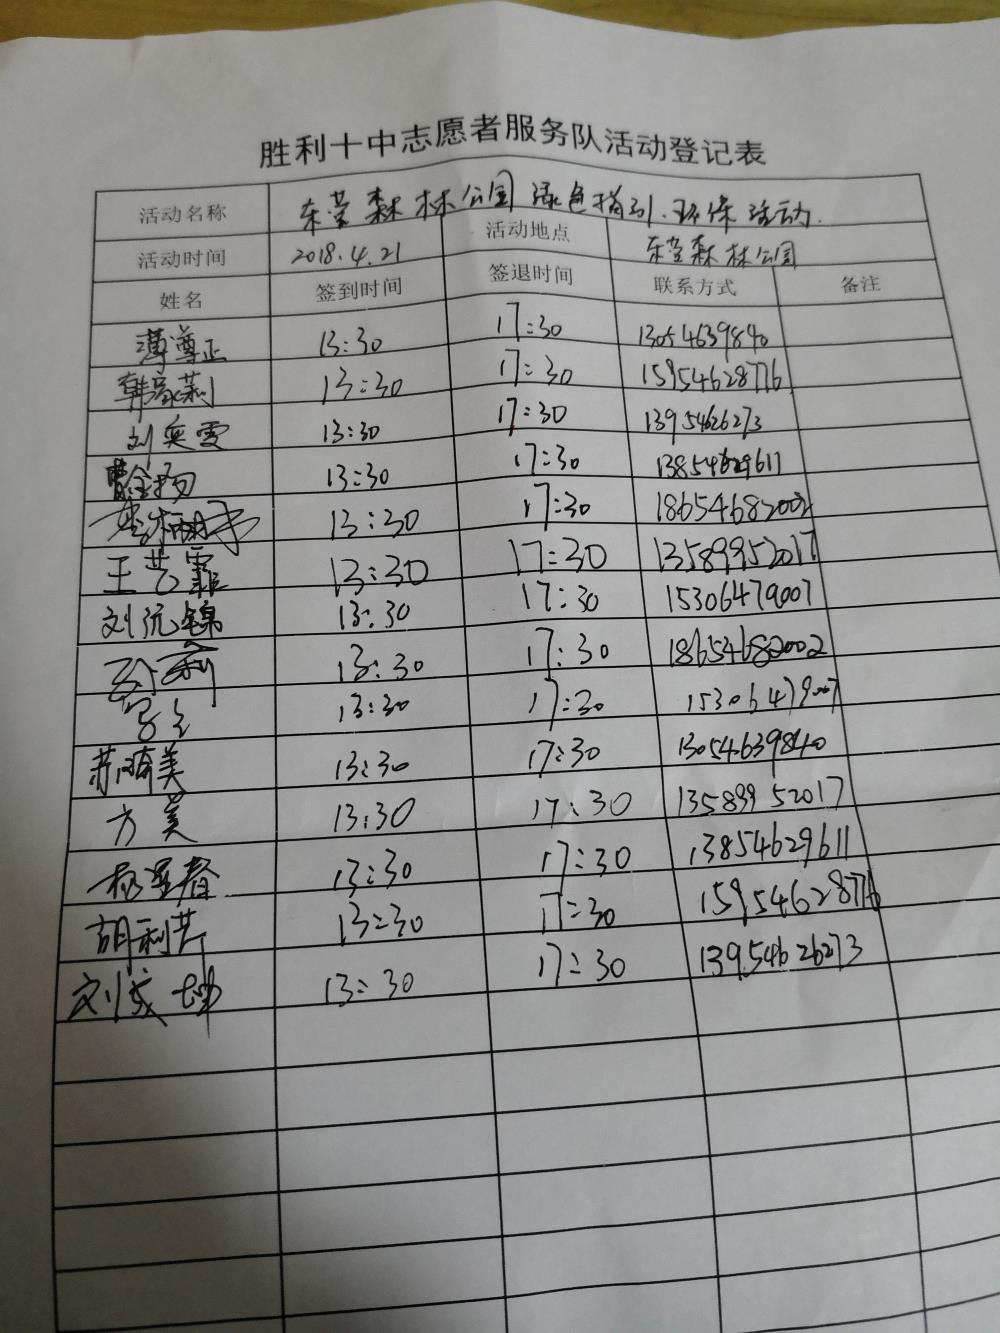 胜利十中志愿者服务队活动登记表
活动名称 东营森林公园绿色指引.环保活动.
活动时间 2018.4.21 活动地点 东营森林公园
姓名 签到时间 签退时间 联系方式 备注
薄尊正 13:30 17:30 13054639840
韩家莉 13:30 17:30 15954628776
刘奕雯 13:30 17:30 13954626273
曹金扬 13:30 17:30 13854629611
13:30 17:30 18654682002
王艺霏 13:30 17:30 13589952017
刘沅锦 13:30 17:30 15306479007
13:30 17:30 18654682002
13:30 17:30 15306479007
13:30 17:30 13054639840
方美 13:30 17:30 13589952017
13:30 17:30 13854629611
胡利芹 13:30 17:30 15954628776
刘成坤 13:30 17:30 13954626273